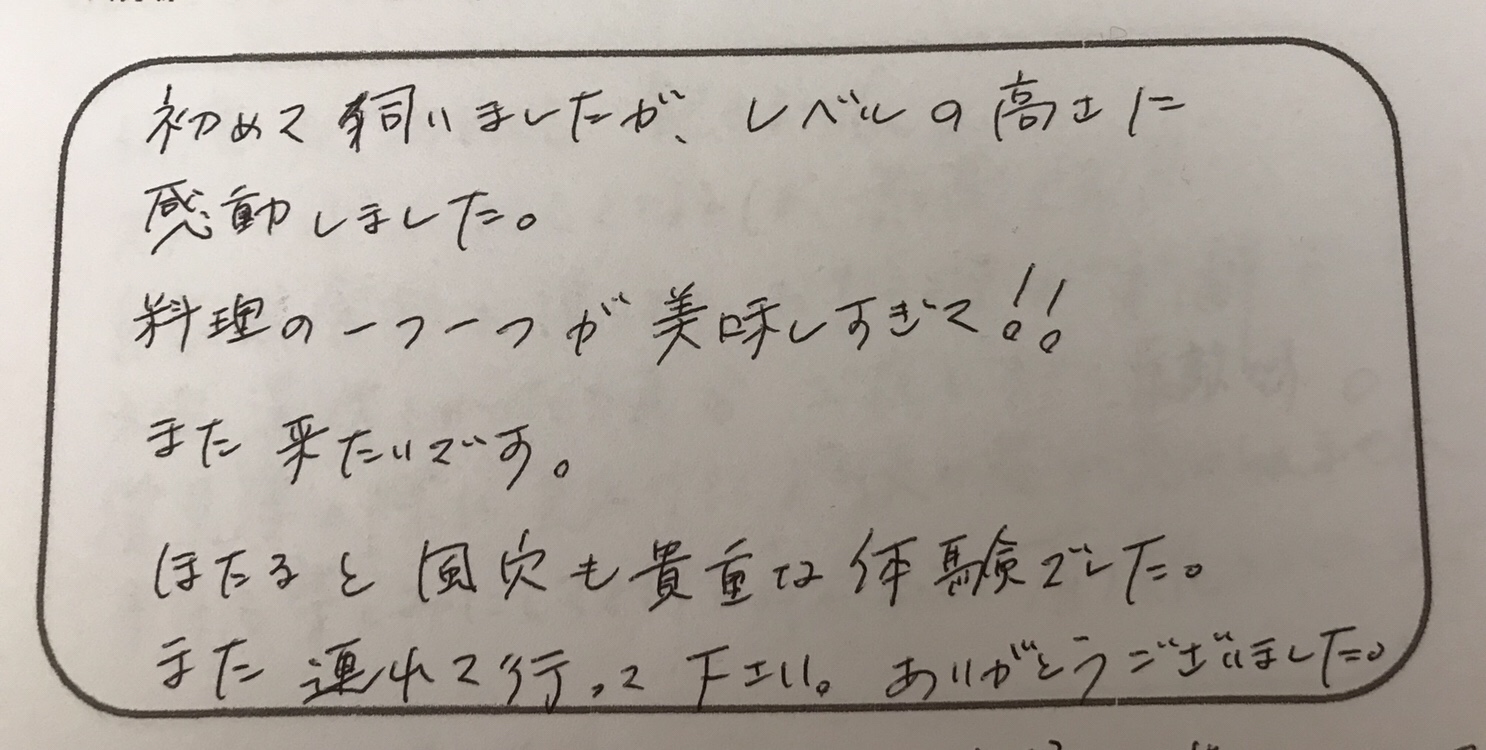 初めて伺いましたが、レベルの高さに
感動しました。
料理の一つ一つが美味しすぎて!!
また来たいです。
ほたると風穴も貴重な体験でした。
また連れて行って下さい。ありがとうございました。